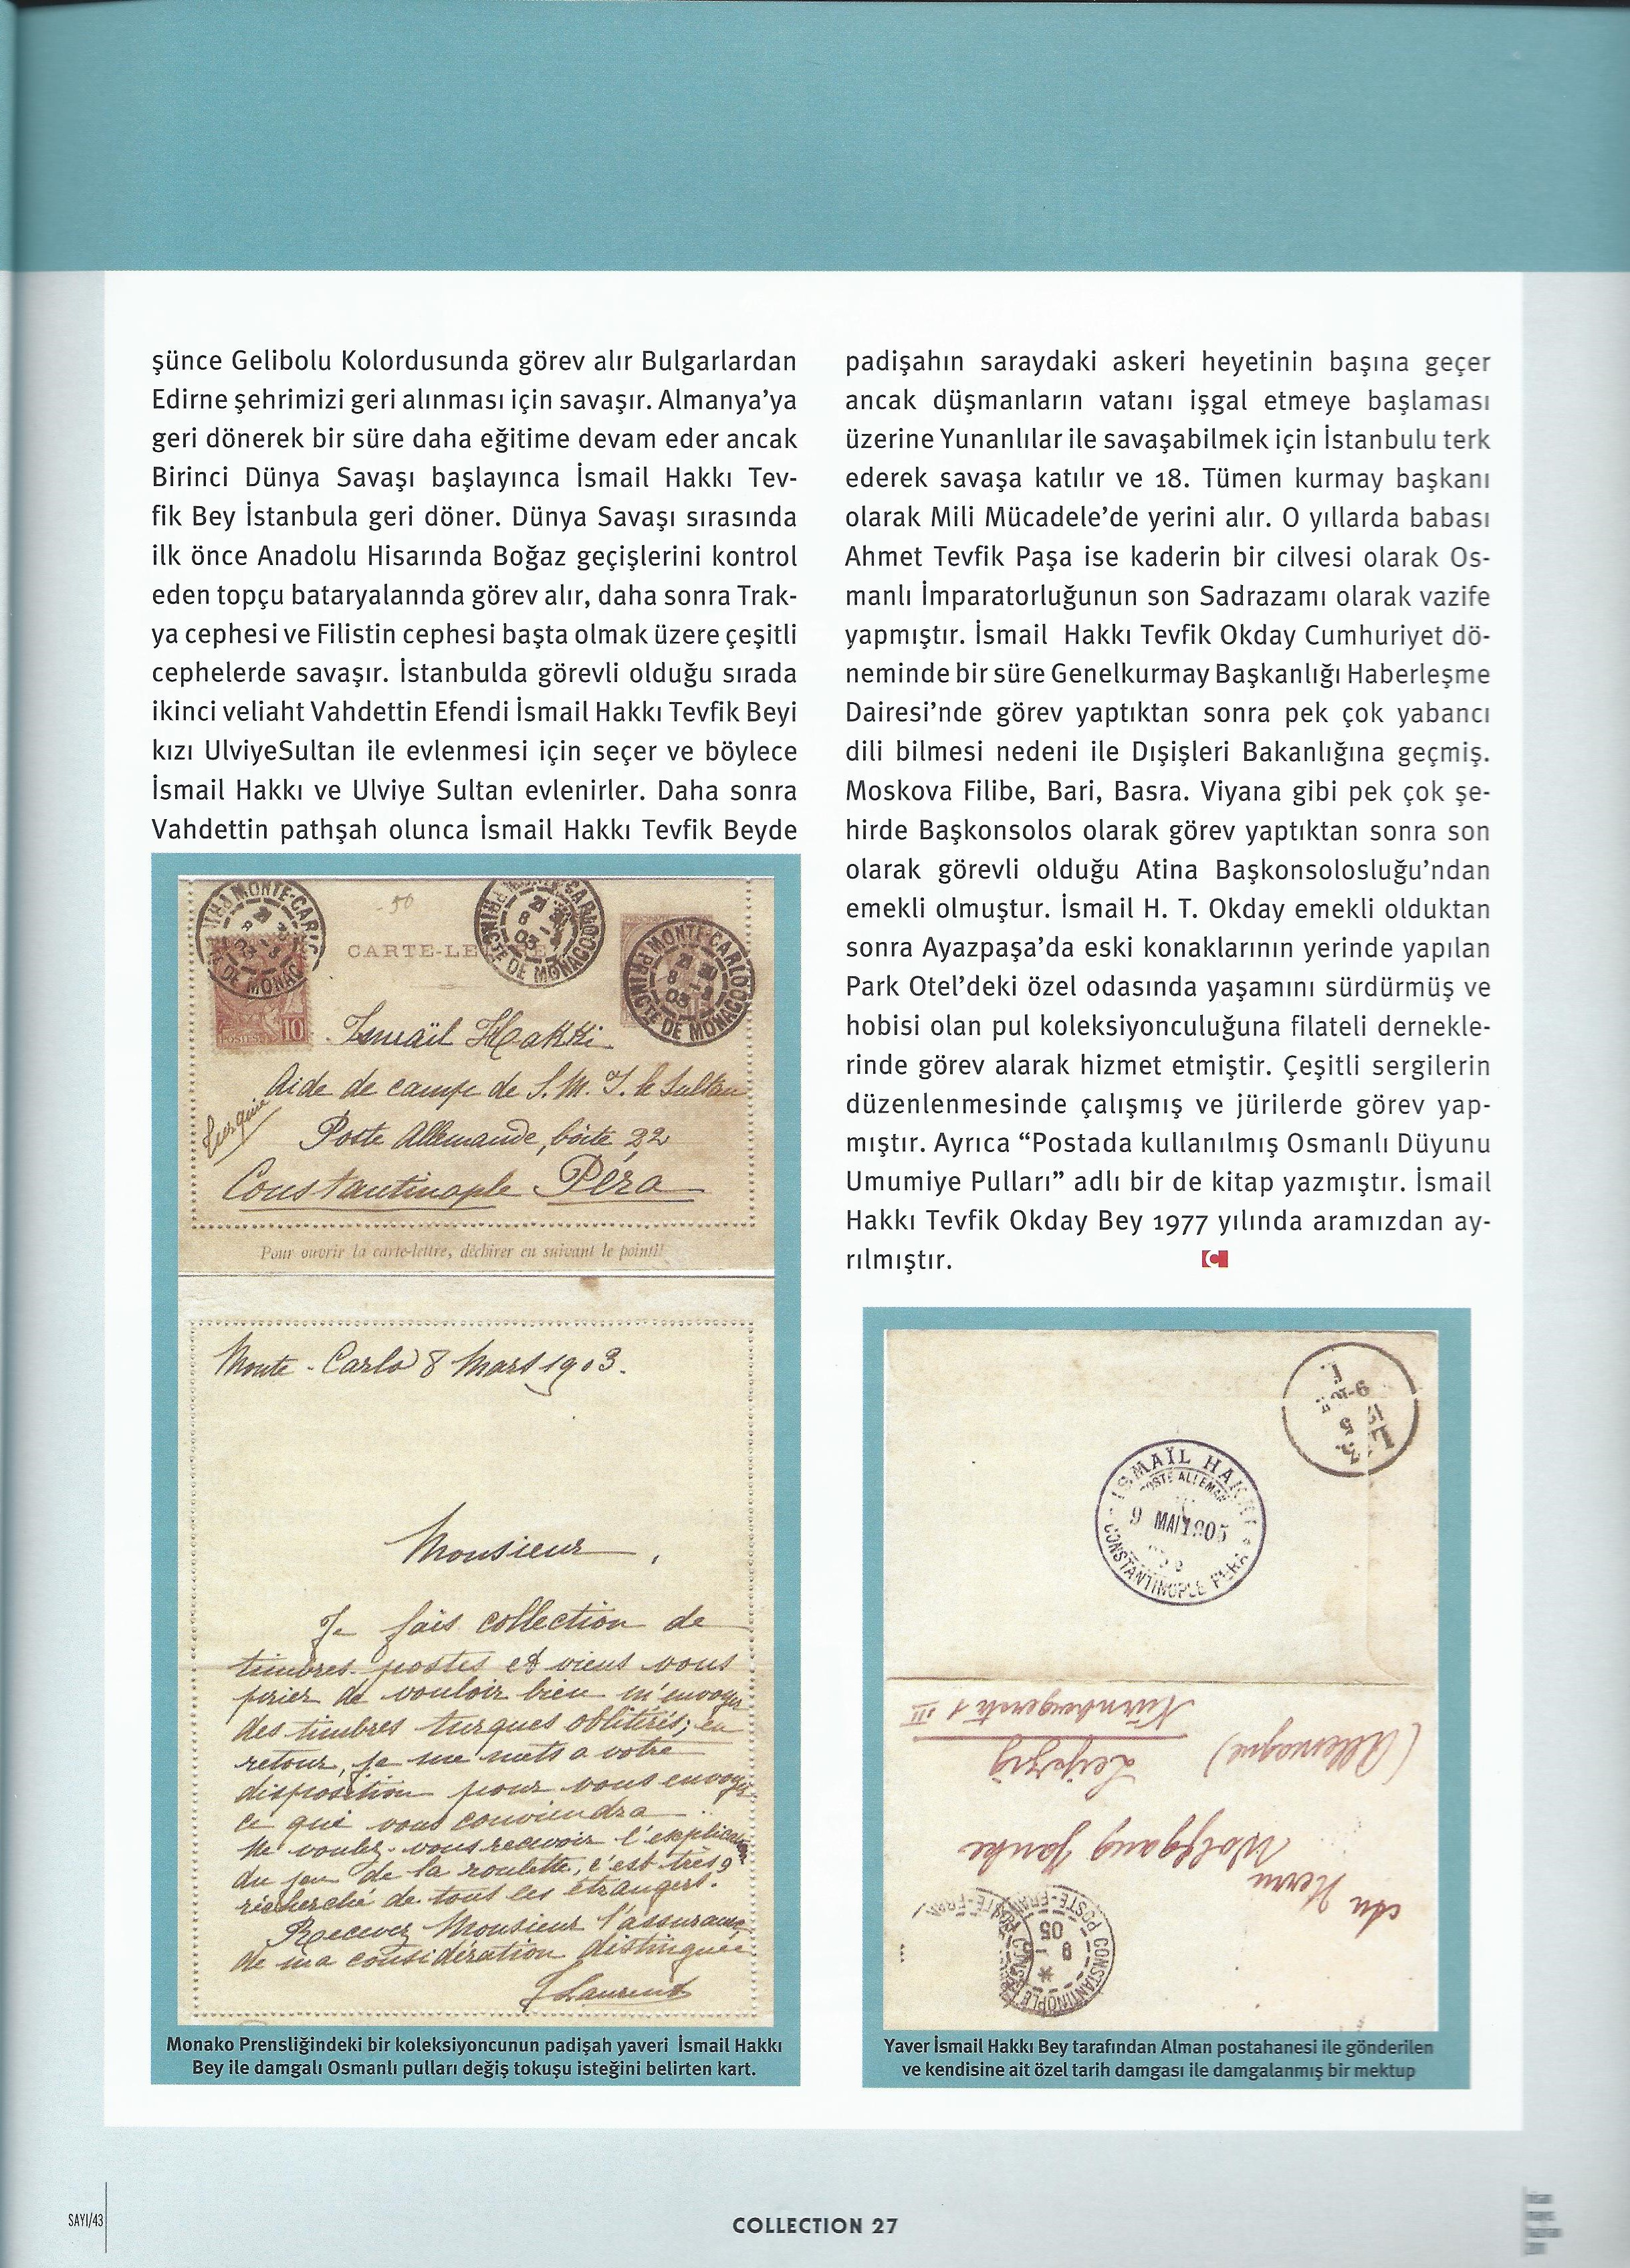 şünce Gelibolu Kolordusunda görev alır Bulgarlardan
Edirne şehrimizi geri alınması için savaşır. Almanya'ya
geri dönerek bir süre daha eğitime devam eder ancak
Birinci Dünya Savaşı başlayınca İsmail Hakkı Tev-
fik Bey İstanbula geri döner. Dünya Savaşı sırasında
ilk önce Anadolu Hisarında Boğaz geçişlerini kontrol
eden topçu bataryalannda görev alır, daha sonra Trak-
ya cephesi ve Filistin cephesi başta olmak üzere çeşitli
cephelerde savaşır. İstanbulda görevli olduğu sırada
ikinci veliaht Vahdettin Efendi İsmail Hakkı Tevfik Beyi
kızı UlviyeSultan ile evlenmesi için seçer ve böylece
İsmail Hakkı ve Ulviye Sultan evlenirler. Daha sonra
Vahdettin pathşah olunca İsmail Hakkı Tevfik Beyde
MONTE-CARLO
PRINCTE DE MONACO
POSTES 10
-50
CARTE-LE
MONTE-CARLO
PRINCTE DE MONACO
Ismaïl Hakki
Aide de camp de S. M. I. le Sultan
Turquie
Poste Allemande, boîte 22
Constantinople Péra
Pour ouvrir la carte-lettre, déchirer en suivant le pointillé
Monte-Carlo 8 Mars 1903.
Monsieur,
Je fais collection de
timbres-postes et viens vous
prier de vouloir bien m'envoyer
des timbres turques oblitérés; en
retour, je me mets a votre
disposition pour vous envoyer
ce que vous conviendra
Ne voulez-vous recevoir l'explication
du jeu de la roulette, c'est très
recherché de tous les étrangers.
Recevez Monsieur l'assurance
de ma considération distinguée
J Laurent
Monako Prensliğindeki bir koleksiyoncunun padişah yaveri İsmail Hakkı
Bey ile damgalı Osmanlı pulları değiş tokuşu isteğini belirten kart.
padişahın saraydaki askeri heyetinin başına geçer
ancak düşmanların vatanı işgal etmeye başlaması
üzerine Yunanlılar ile savaşabilmek için İstanbulu terk
ederek savaşa katılır ve 18. Tümen kurmay başkanı
olarak Mili Mücadele'de yerini alır. O yıllarda babası
Ahmet Tevfik Paşa ise kaderin bir cilvesi olarak Os-
manlı İmparatorluğunun son Sadrazamı olarak vazife
yapmıştır. İsmail Hakkı Tevfik Okday Cumhuriyet dö-
neminde bir süre Genelkurmay Başkanlığı Haberleşme
Dairesi'nde görev yaptıktan sonra pek çok yabancı
dili bilmesi nedeni ile Dışişleri Bakanlığına geçmiş.
Moskova Filibe, Bari, Basra. Viyana gibi pek çok şe-
hirde Başkonsolos olarak görev yaptıktan sonra son
olarak görevli olduğu Atina Başkonsolosluğu'ndan
emekli olmuştur. İsmail H. T. Okday emekli olduktan
sonra Ayazpaşa'da eski konaklarının yerinde yapılan
Park Otel'deki özel odasında yaşamını sürdürmüş ve
hobisi olan pul koleksiyonculuğuna filateli dernekle-
rinde görev alarak hizmet etmiştir. Çeşitli sergilerin
düzenlenmesinde çalışmış ve jürilerde görev yap-
mıştır. Ayrıca “Postada kullanılmış Osmanlı Düyunu
Umumiye Pulları” adlı bir de kitap yazmıştır. İsmail
Hakkı Tevfik Okday Bey 1977 yılında aramızdan ay-
rılmıştır.
C
ISMAÏL HAKKI
POSTE ALLEMAN
9 MAI 1905
CONSTANTINOPLE PERA
An Herrn
Wolfgang Janke
Leipzig
(Allemagne)
Nürnbergerstr 1 III
CONSTANTINOPLE
POSTE-FRAN
05
Yaver İsmail Hakkı Bey tarafından Alman postahanesi ile gönderilen
ve kendisine ait özel tarih damgası ile damgalanmış bir mektup
SAYI/43
COLLECTION 27